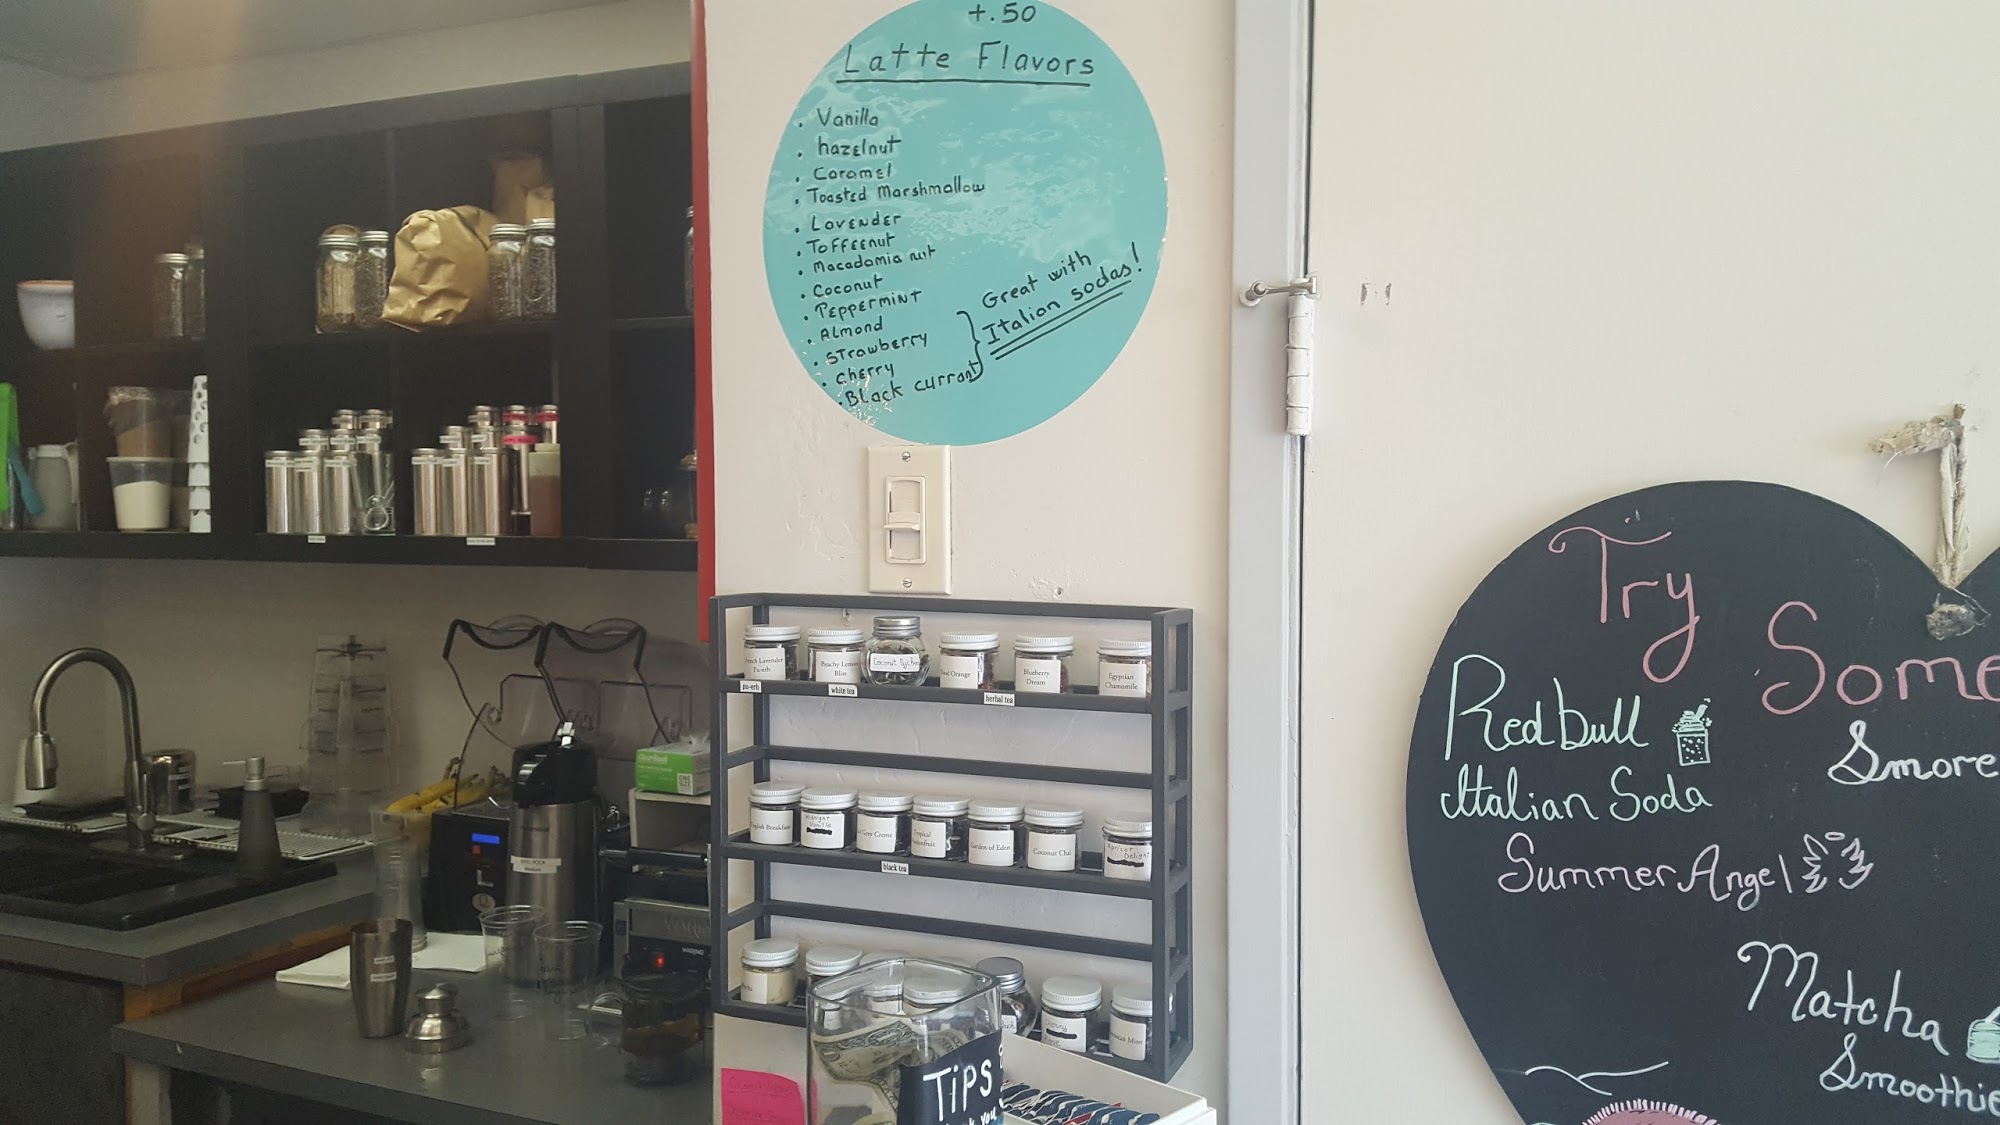 +.50
Latte Flavors
• Vanilla
• hazelnut
• Caramel
• Toasted Marshmallow
• Lavender
• Toffeenut
• Macadamia nut
• Coconut
• Peppermint
• Almond
• Strawberry
• Cherry
• Black currant
Great with
Italian sodas!
Lavender
Pu-erh
Peachy Lemon
Bliss
Coconut
Orange
Blueberry
Dream
Egyptian
Chamomile
pu-erh
white tea
herbal tea
English Breakfast
Midnight
Vanilla
Grey Creme
Tropical
Garden of Eden
Coconut Chai
Apricot
Delight
black tea
Mint
TIPS
Try
Some
Redbull
Italian Soda
Smore
Summer Angel
Matcha
Smoothie
WARING
ONE
SIZE